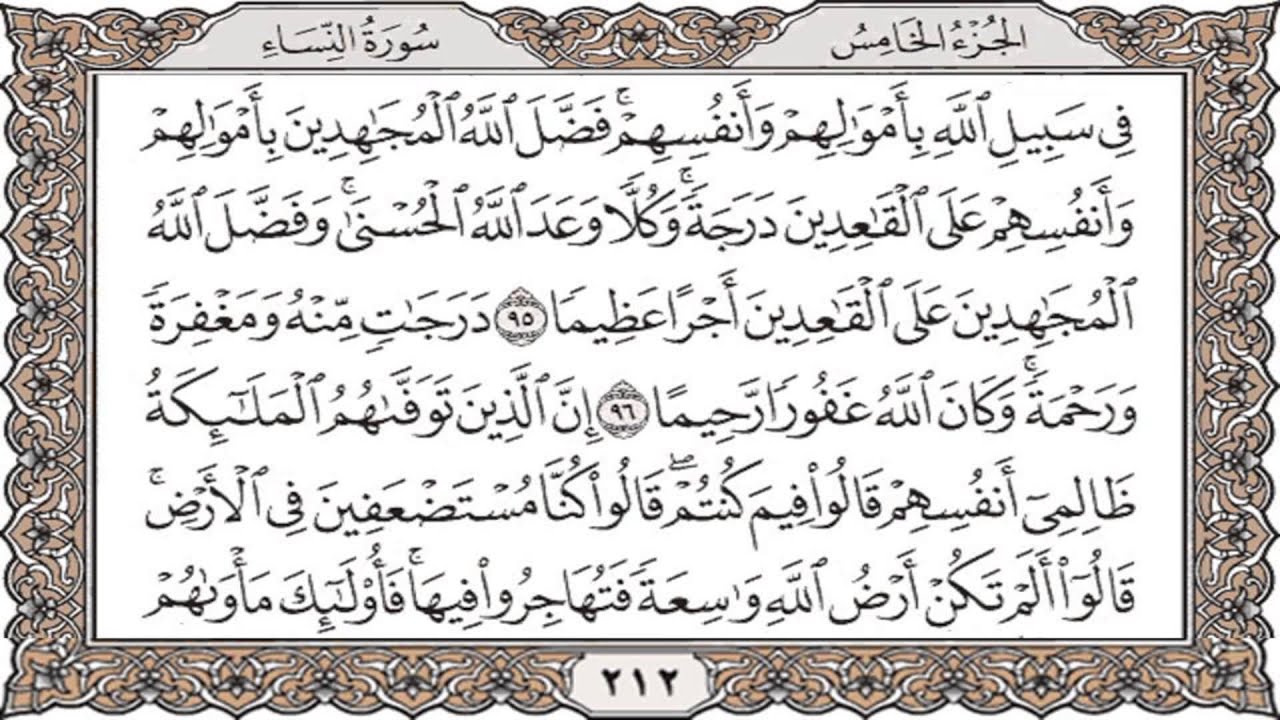 الجُزْءُ الخَامِسُ
سُورَةُ النِّسَاءِ
فِى سَبِيلِ ٱللَّهِ بِأَمْوَٰلِهِمْ وَأَنفُسِهِمْۚ فَضَّلَ ٱللَّهُ ٱلْمُجَٰهِدِينَ بِأَمْوَٰلِهِمْ
وَأَنفُسِهِمْ عَلَى ٱلْقَٰعِدِينَ دَرَجَةًۚ وَكُلًّا وَعَدَ ٱللَّهُ ٱلْحُسْنَىٰۚ وَفَضَّلَ ٱللَّهُ
ٱلْمُجَٰهِدِينَ عَلَى ٱلْقَٰعِدِينَ أَجْرًا عَظِيمًا ٩٥ دَرَجَٰتٍ مِّنْهُ وَمَغْفِرَةً
وَرَحْمَةًۚ وَكَانَ ٱللَّهُ غَفُورًا رَّحِيمًا ٩٦ إِنَّ ٱلَّذِينَ تَوَفَّىٰهُمُ ٱلْمَلَٰٓئِكَةُ
ظَالِمِىٓ أَنفُسِهِمْ قَالُوا۟ فِيمَ كُنتُمْۖ قَالُوا۟ كُنَّا مُسْتَضْعَفِينَ فِى ٱلْأَرْضِۚ
قَالُوٓا۟ أَلَمْ تَكُنْ أَرْضُ ٱللَّهِ وَٰسِعَةً فَتُهَاجِرُوا۟ فِيهَاۚ فَأُو۟لَٰٓئِكَ مَأْوَىٰهُمْ
٢١٢